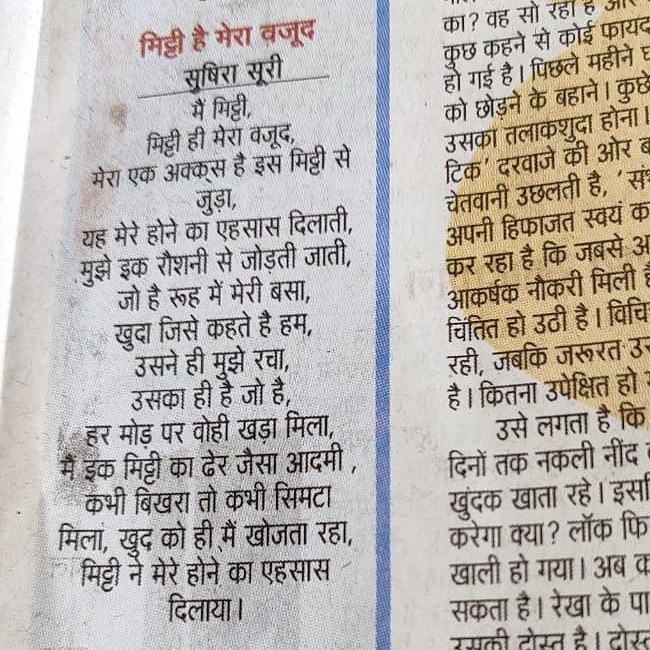 मिट्टी है मेरा वजूद
सुषिरा सूरी
मै मिट्टी,
मिट्टी ही मेरा वजूद,
मेरा एक अक्क्स है इस मिट्टी से
जुड़ा,
यह मेरे होने का एहसास दिलाती,
मुझे इक रौशनी से जोड़ती जाती,
जो है रूह में मेरी बसा,
खुदा जिसे कहते है हम,
उसने ही मुझे रचा,
उसका ही है जो है,
हर मोड़ पर वोही खड़ा मिला,
मैं इक मिट्टी का ढेर जैसा आदमी ,
कभी बिखरा तो कभी सिमटा
मिला, खुद को ही मैं खोजता रहा,
मिट्टी ने मेरे होने का एहसास
दिलाया।
का? वह सो रहा है और
कुछ कहने से कोई
हो गई है। पिछले महीने
को छोड़ने के बहाने।
उसका तलाकशुदा होना।
टिक' दरवाजे की ओर
चेतवानी उछलती है,
अपनी हिफाजत स्वयं
कर रहा है कि जबसे
आकर्षक नौकरी मिली
चिंतित हो उठी है।
रही, जबकि जरूरत
है। कितना उपेक्षित हो
उसे लगता है कि
दिनों तक नकली नींद
खुंदक खाता रहे।
करेगा क्या? लॉक
खाली हो गया। अब
सकता है। रेखा के
उसकी दोस्त है।